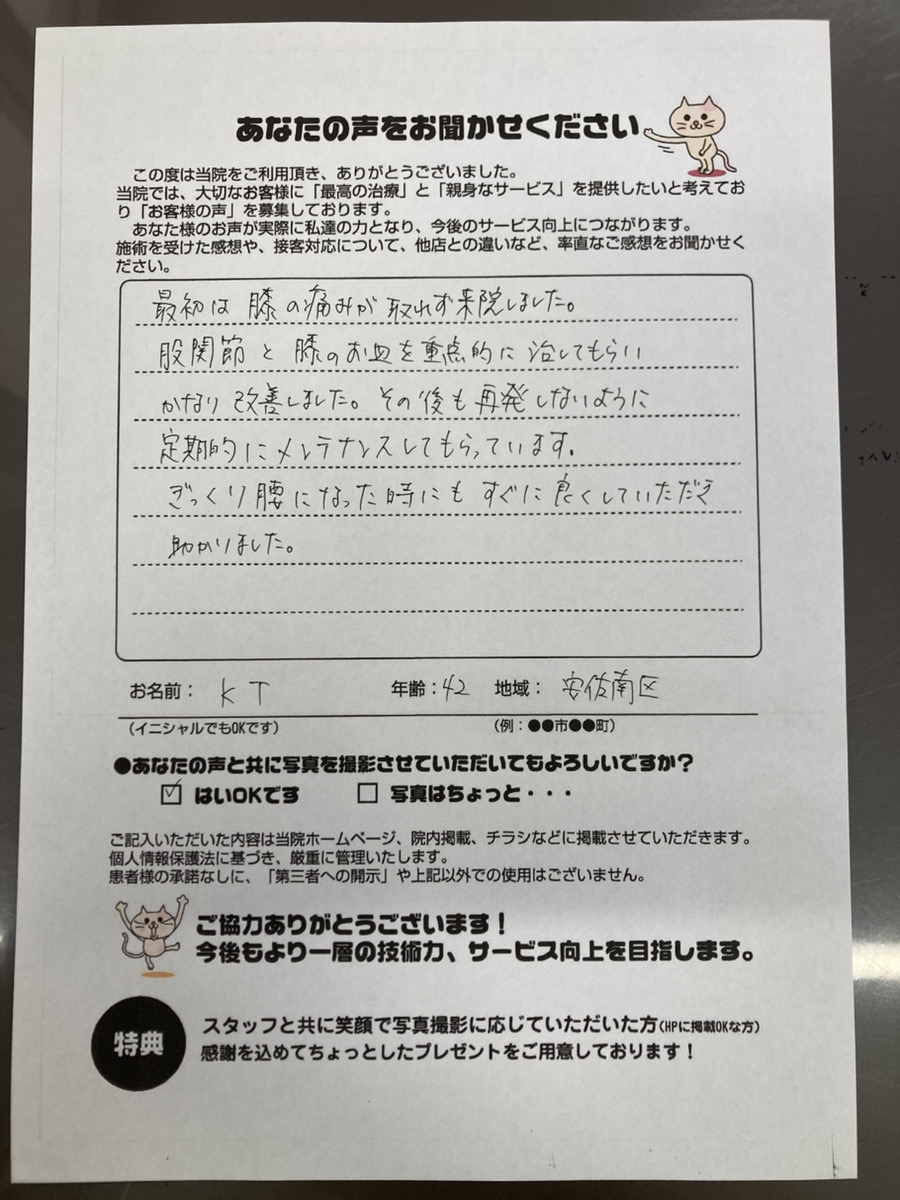 あなたの声をお聞かせください
この度は当院をご利用頂き、ありがとうございました。
当院では、大切なお客様に「最高の治療」と「親身なサービス」を提供したいと考えてお
り「お客様の声」を募集しております。
あなた様のお声が実際に私達の力となり、今後のサービス向上につながります。
施術を受けた感想や、接客対応について、他店との違いなど、率直なご感想をお聞かせく
ださい。
最初は膝の痛みが取れず来院しました。
股関節と膝のお皿を重点的に治してもらい
かなり改善しました。その後も再発しないように
定期的にメンテナンスしてもらっています。
ぎっくり腰になった時にもすぐに良くしていただき
助かりました。
お名前： KT 年齢：42 地域： 安佐南区
（イニシャルでもOKです） （例：●●市●●町）
●あなたの声と共に写真を撮影させていただいてもよろしいですか？
☑ はいOKです □ 写真はちょっと・・・
ご記入いただいた内容は当院ホームページ、院内掲載、チラシなどに掲載させていただきます。
個人情報保護法に基づき、厳重に管理いたします。
患者様の承諾なしに、「第三者への開示」や上記以外での使用はございません。
ご協力ありがとうございます！
今後もより一層の技術力、サービス向上を目指します。
特典
スタッフと共に笑顔で写真撮影に応じていただいた方（HPに掲載OKな方）
感謝を込めてちょっとしたプレゼントをご用意しております！